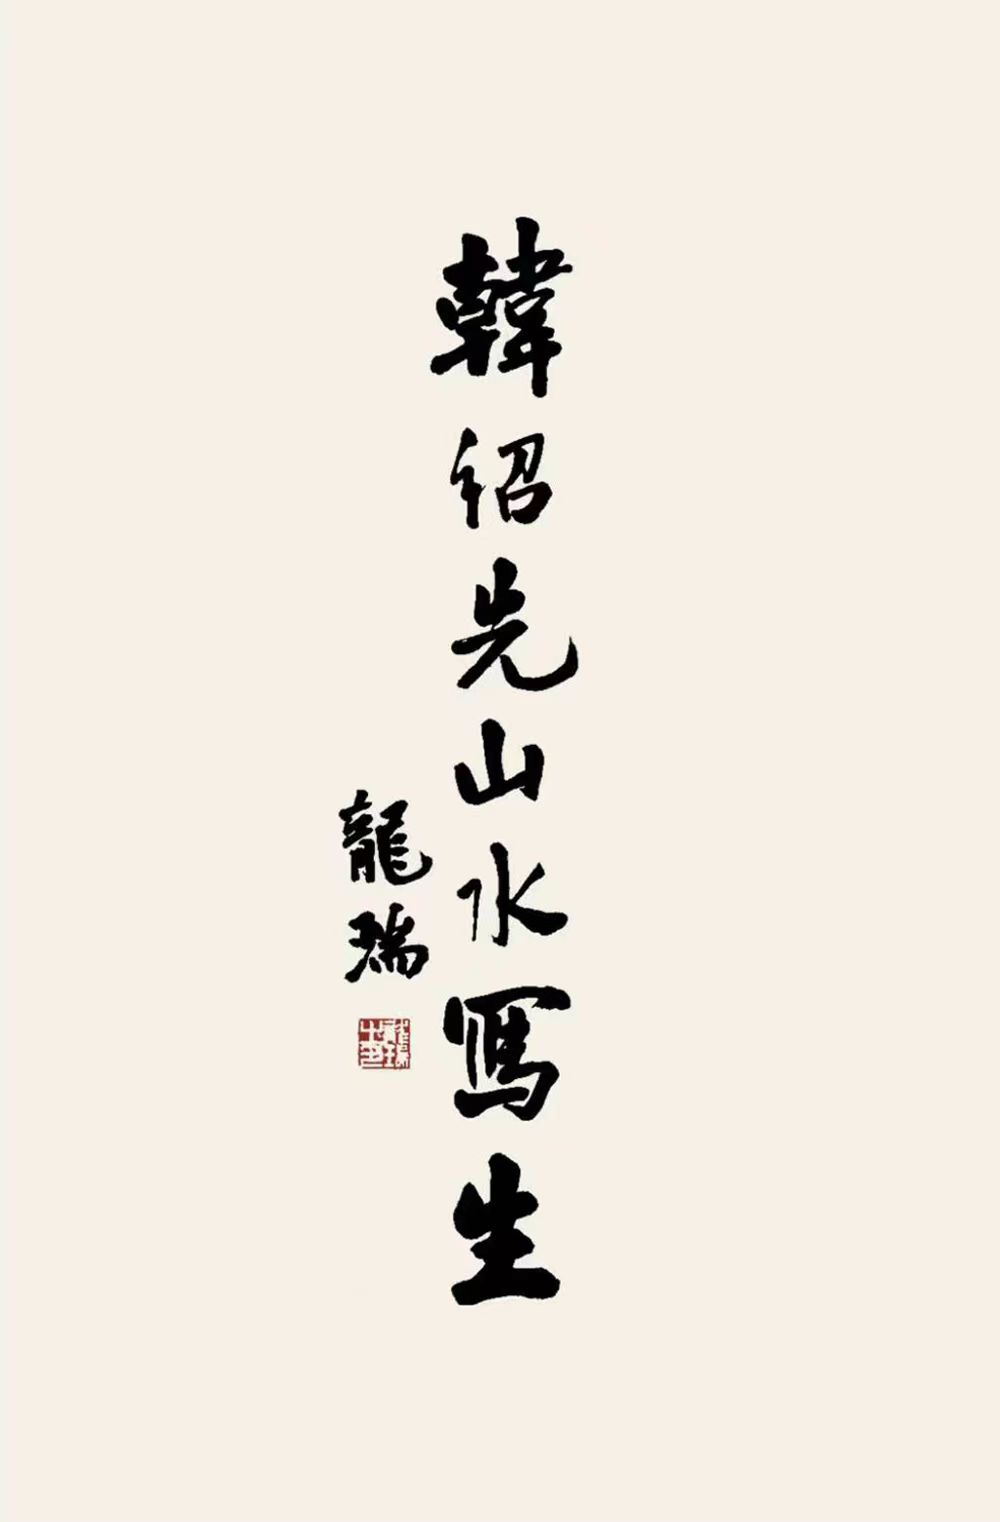 韓紹先山水寫生
龍瑞